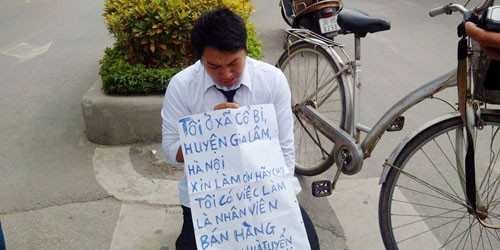 TÔI Ở XÃ CỔ BI,
HUYỆN GIA LÂM,
HÀ NỘI
XIN LÀM ƠN HÃY CHO
TÔI CÓ VIỆC LÀM
LÀ NHÂN VIÊN
BÁN HÀNG
TUYỂN